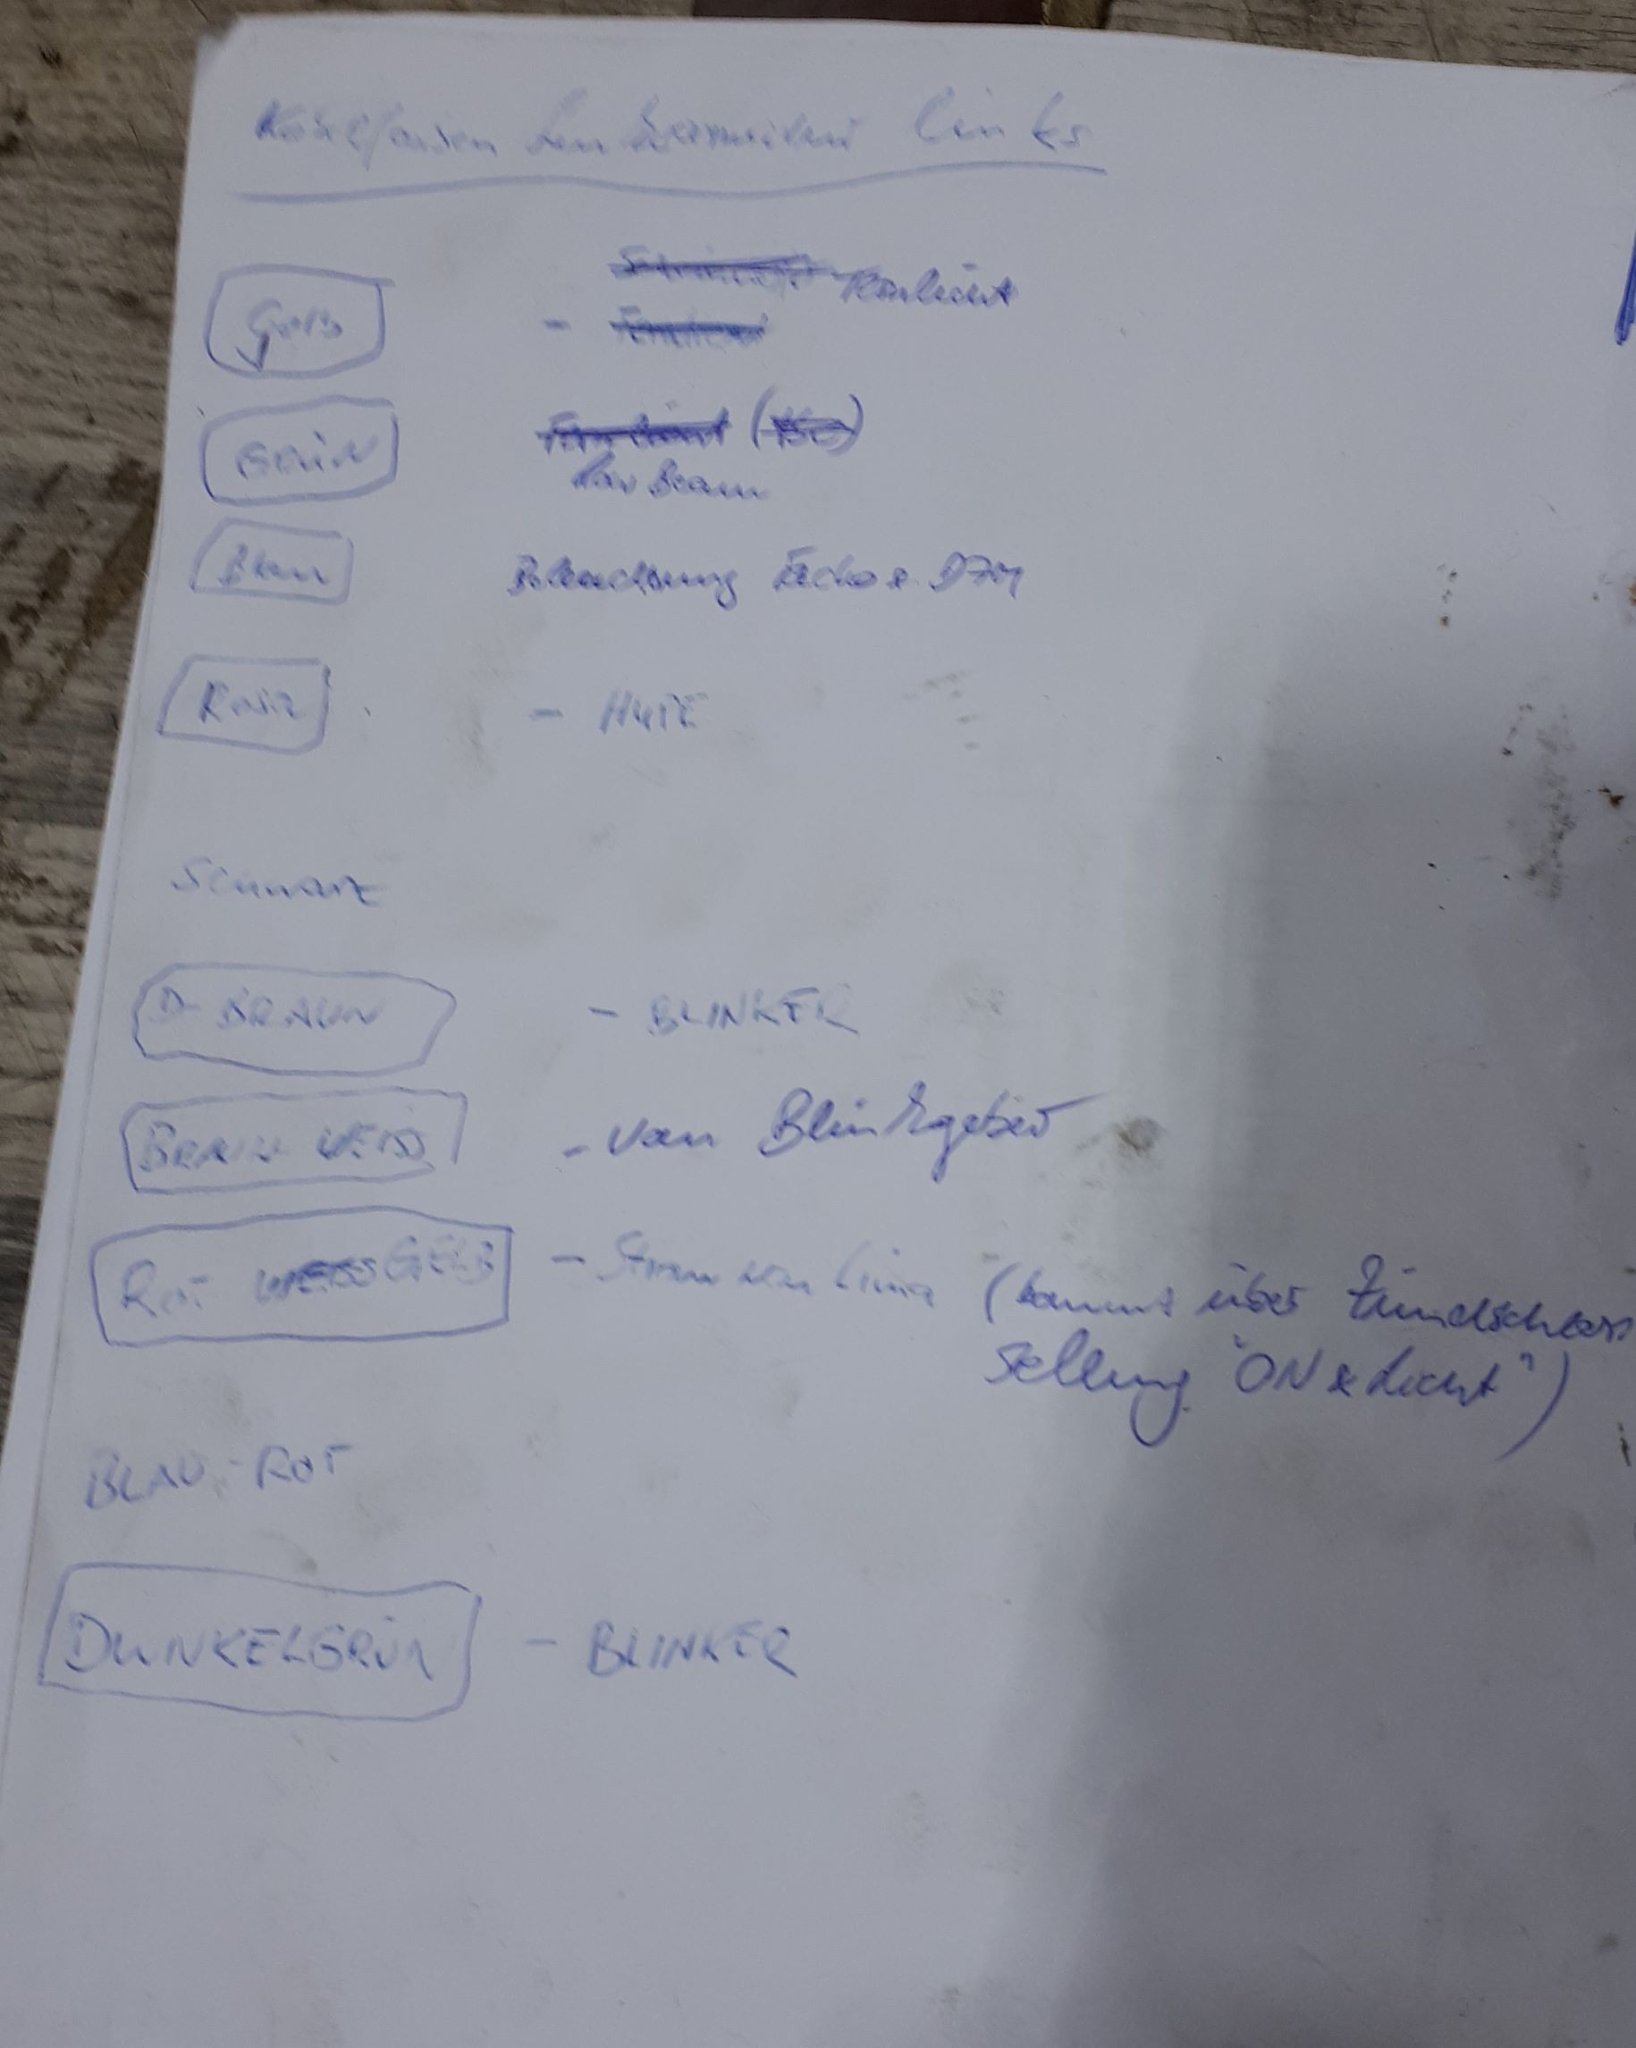 Kabelfarben Lenkerarmatur links
Gelb - Fernlicht
GRÜN
Low Beam
Blau Beleuchtung Tacho & DZM
Rosa - HUPE
Schwarz
D-BRAUN - BLINKER
BRAUN WEISS - vom Blinkgeber
ROT WEISS GELB - Strom von Lima (kommt über Zündschloss
Stellung "ON & Licht")
BLAU-ROT
DUNKELGRÜN - BLINKER